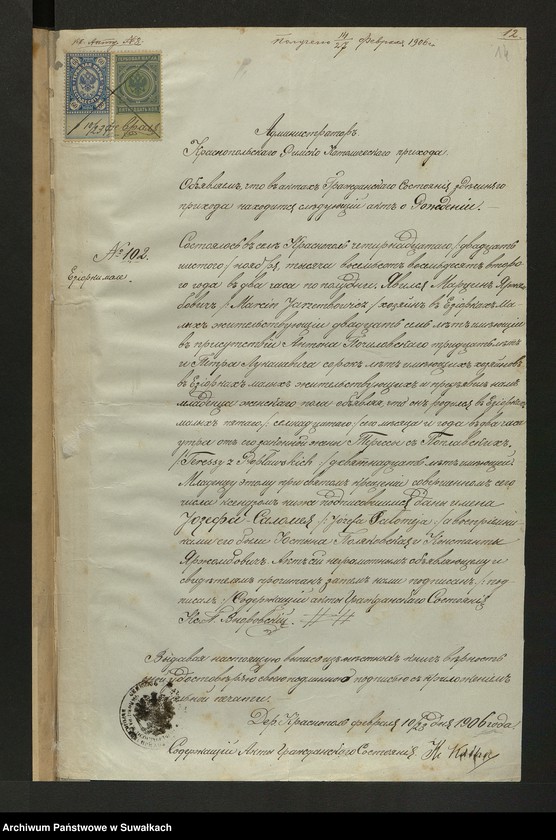 Кь Акту №3
Получено 14/27 Февраля 1906 г.
12
14
Администраторъ
Краснопольскаго Римско Католическаго прихода
Объявляемъ, что въ актахъ Гражданскаго Состоянія здѣшняго
прихода находится слѣдующій актъ о Рожденіи. —
№ 192.
Езіорки малe.
Состоялось въ селѣ Краснополѣ четырнадцатаго /двадцать
шестого/ ноября, тысяча восемьсотъ восемьдесятъ второ
го года въ два часа по полудни. Явился Марцинъ Ярже
бовичъ / Marcin Jarzembowicz / хозяинъ въ Езіоркахъ Ма
лыхъ жительствующій двадцать семь лѣтъ имѣющій
въ присутствіи Антона тридцать лѣтъ
и Петра Лукашевича сорокъ лѣтъ имѣющихъ хозяйновъ
въ Езіоркахъ малыхъ жительствующихъ и предъявилъ намъ
младенца женскаго пола объявляя, что онъ родился въ Езіоркахъ
малыхъ пятаго /семнадцатого/ сего мѣсяца и года въ два часа
утра отъ его законной жены Терезіи съ Поплавскихъ
/Teressy z Popławskich/ девятнадцать лѣтъ имѣющей.
Младенцу этому при святомъ крещеніи совершенномъ сего
числа ксендзомъ ниже подписавшимся даны имена
Іозефа-Саломея /Józefa Salomea/ а воспріемни-
ками его были Юстына Поляковская и Константы
Яржембовичъ. Актъ сей неграмотнымъ объявляющему и
свидѣтелямъ прочитанъ затѣмъ нами подписанъ /: под
писалъ :/ Содержащій акты Гражданскаго Состоянія
Кс. А.
Выдавая настоящую выпись изъ мѣстныхъ книгъ вѣрность
ея удостовѣряю своею подлинною подписью съ приложеніемъ
казенной печати.
Дер. Краснополь февраля 10/23 дня 1906 года.
Содержащій Акты Гражданскаго Состоянія Кс.
Archiwum Państwowe w Suwałkach